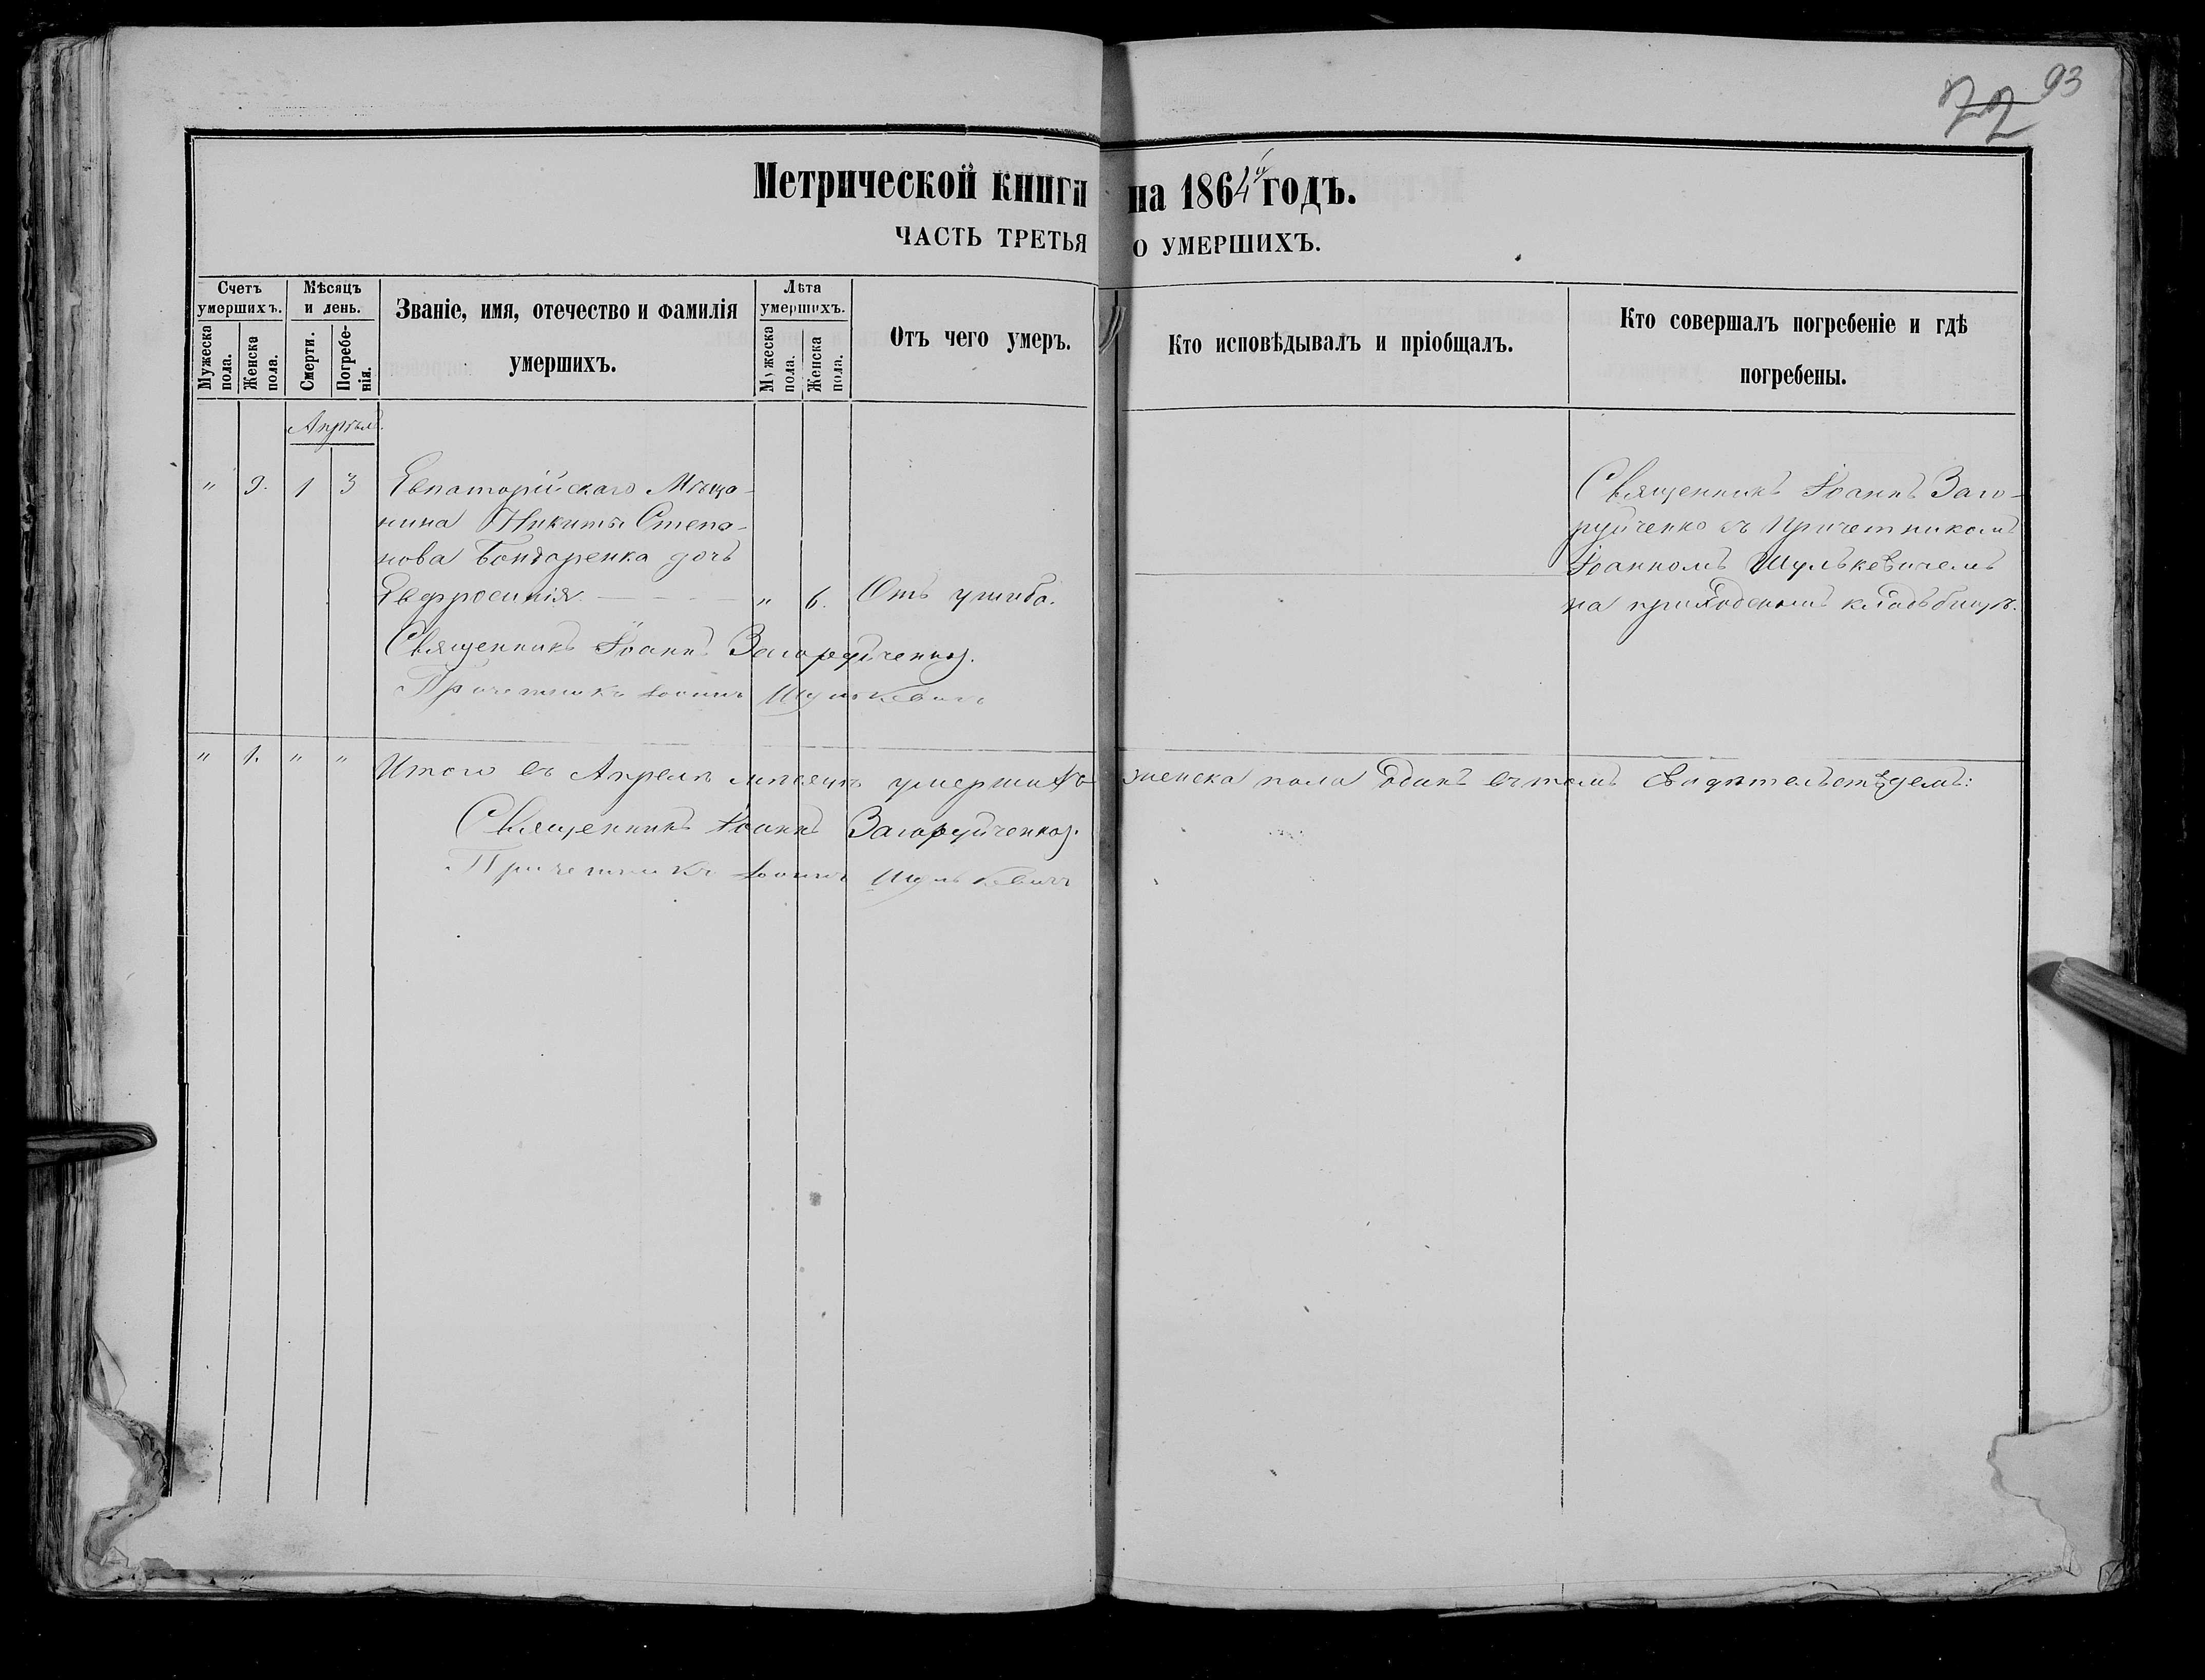 93
72
Метрической книги на 1864й годъ.
ЧАСТЬ ТРЕТЬЯ О УМЕРШИХЪ.
Счетъ умершихъ.
Мужеска пола.
Женска пола.
Мѣсяцъ и день.
Смерти.
Погребенія.
Званіе, имя, отечество и фамилія
умершихъ.
Лѣта умершихъ.
Мужеска пола.
Женска пола.
Отъ чего умеръ.
Кто исповѣдывалъ и пріобщалъ.
Кто совершалъ погребеніе и гдѣ
погребены.
Апрѣль.
" 9. 1 3 Евпаторійскаго Мѣща-
нина Никиты Степа-
нова Бондаренка дочь
Евфросинія. " 6. Отъ ушиба.
Священникъ Іоаннъ Заго-
руйченко съ Причетникомъ
Іоанномъ Шулькевичемъ
на приходскомъ кладбищѣ.
Священникъ Іоаннъ Загоруйченко.
Причетникъ Іоаннъ Шулькевичъ
" 1. " " Итого въ Апрелѣ мѣсяцѣ умершихъ женска пола одинъ въ томъ свидѣтельствуемъ:
Священникъ Іоаннъ Загоруйченко.
Причетникъ Іоаннъ Шулькевичъ